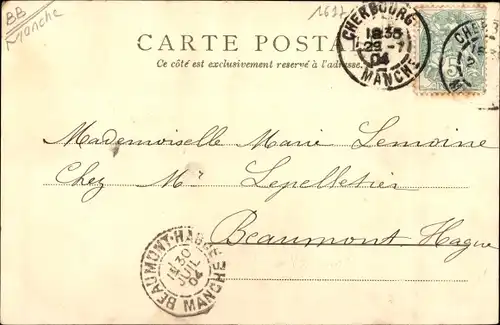 BB
Manche
1617
CARTE POSTA
Ce côté est exclusivement reservé à l'adresse.
CHERBOURG
18 35
29 -7
04
MANCHE
5
CHER
Mademoiselle Marie Lemoine
Chez Mr Lepelletier
Beaumont. Hague
BEAUMONT-HAGUE
30
JUIL
04
MANCHE